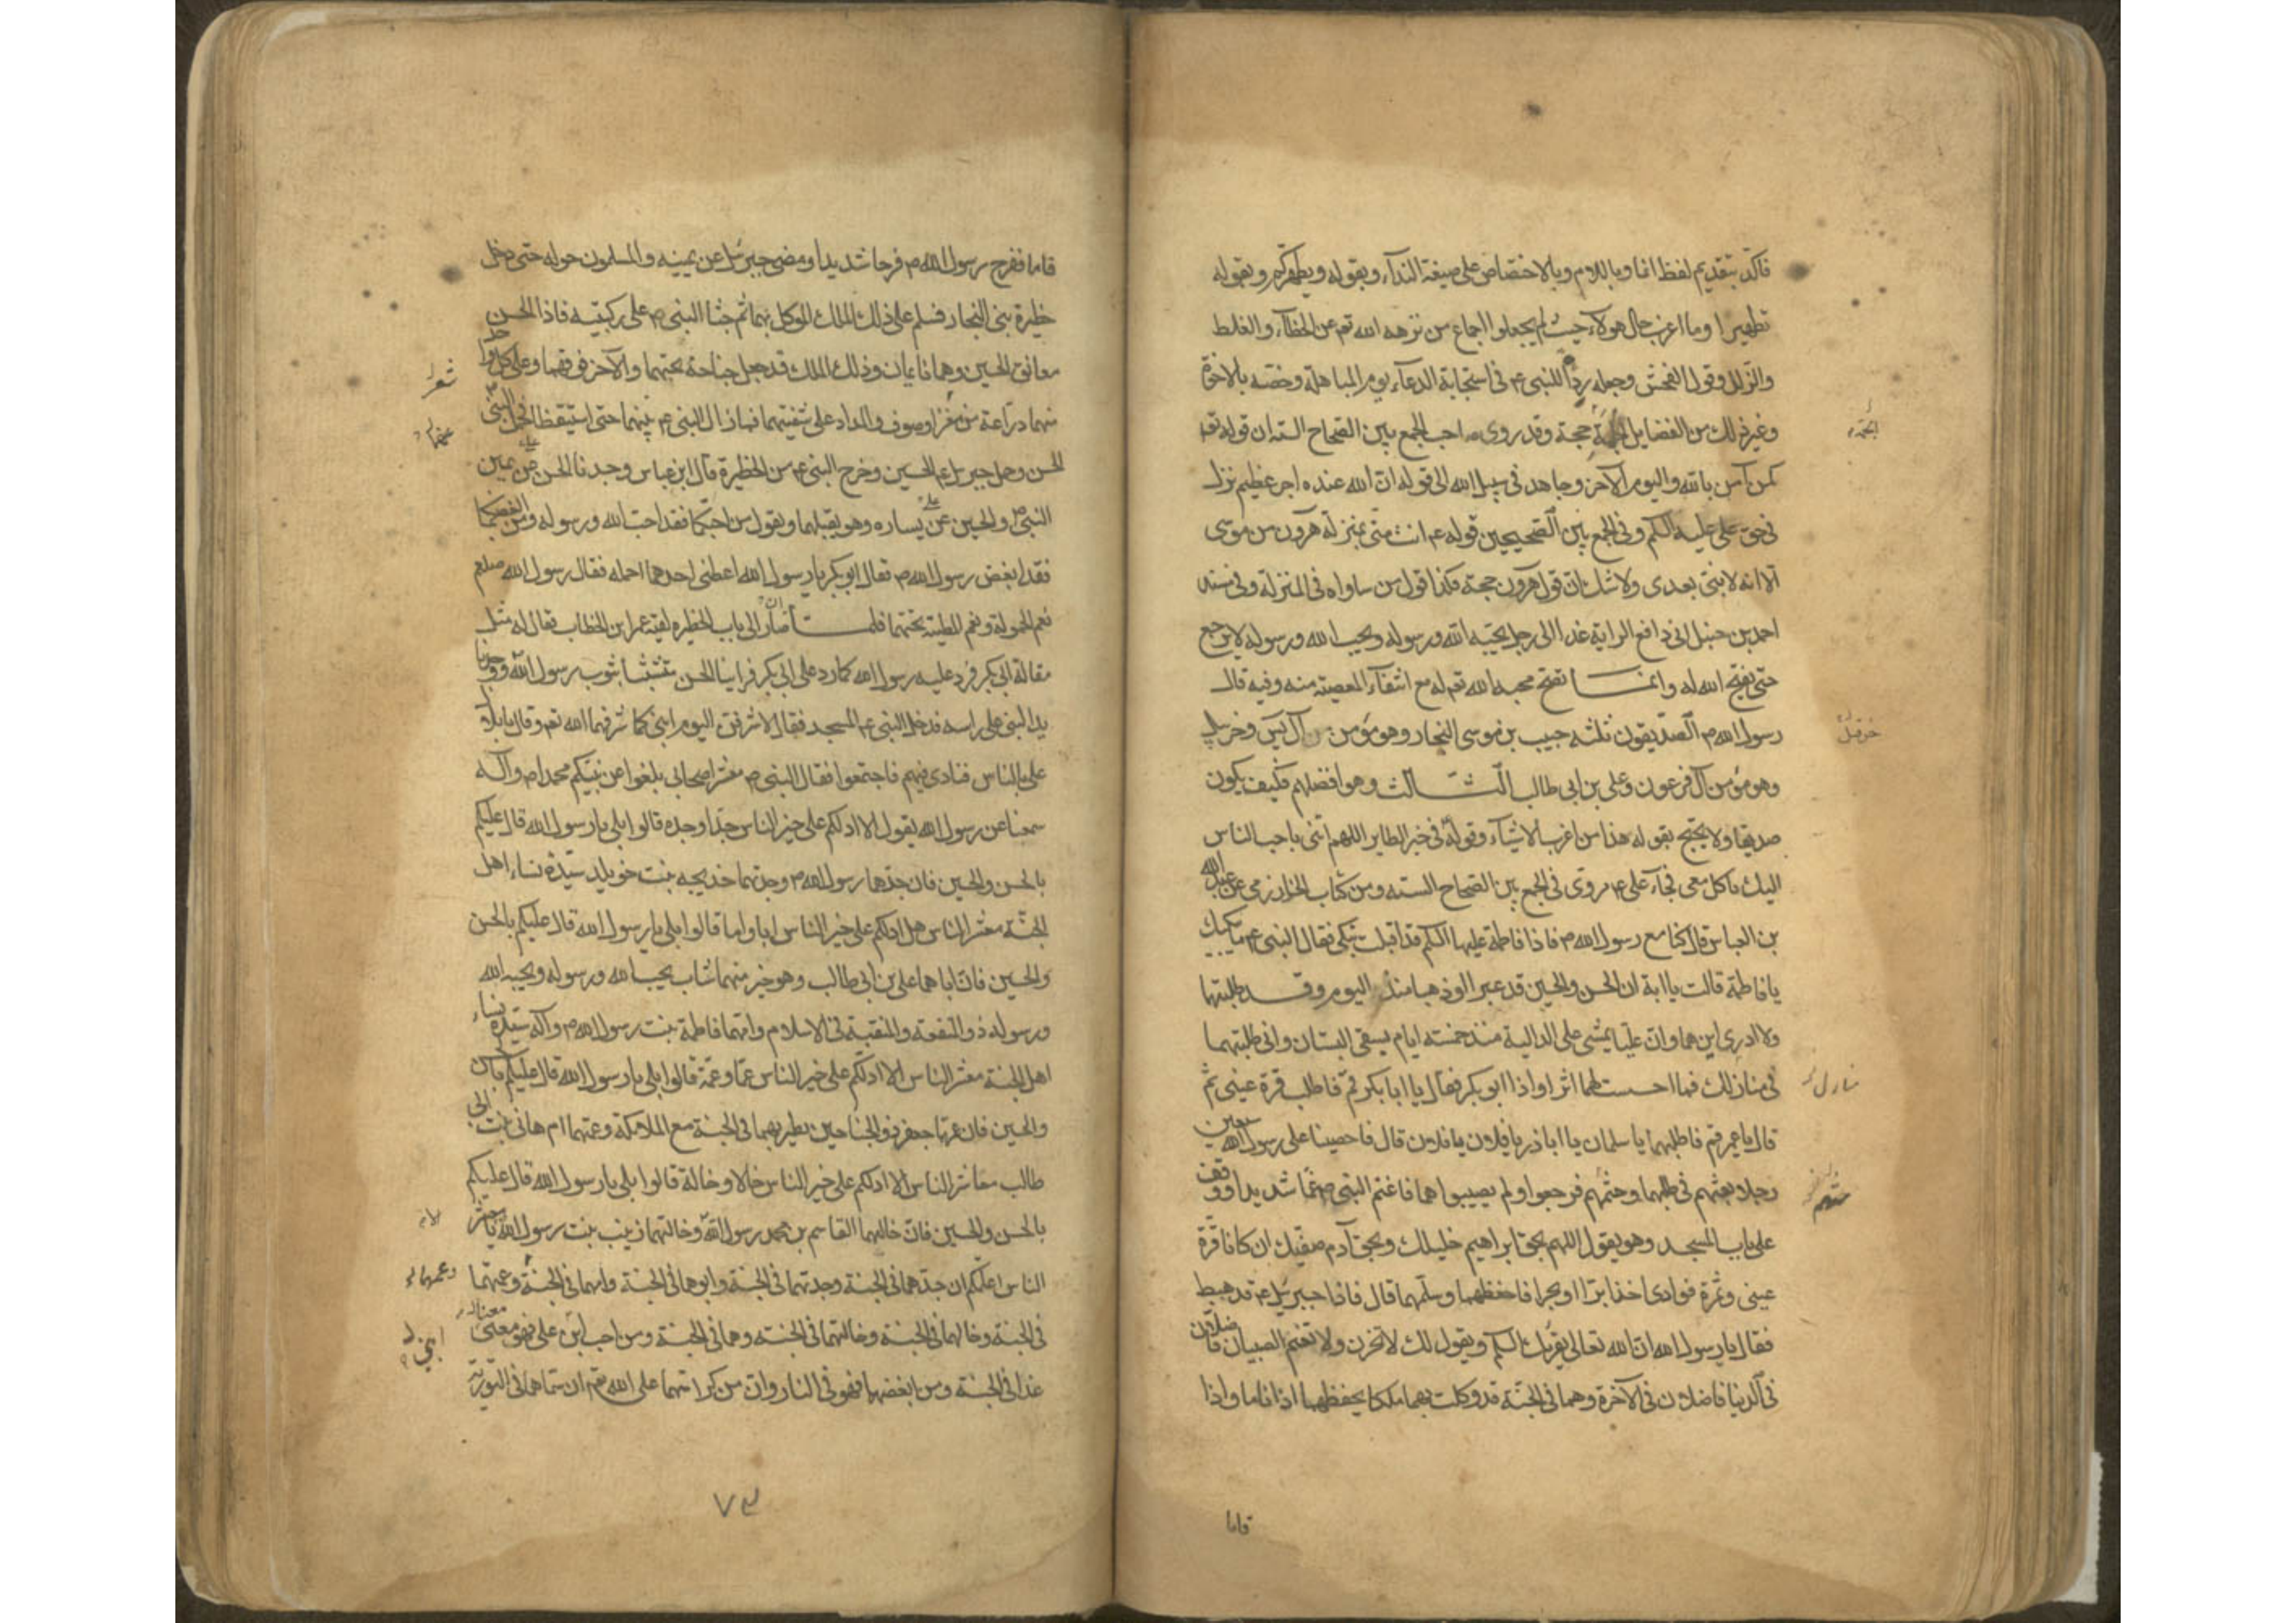 فاكّد بتقديم لفظ انما وباللام وبالاختصاص على صيغة النداء وبقوله ويطهركم وبقوله
تطهيرا وما اعرب حال هولاء حيث لم يجعلوا اجماع من نزهه الله تعم عن الخطآء والغلط
والزلل وقول الفحش وجعله ردا للنبى ع م فى استجابة الدعاء يوم المباهلة وخصّه بالاخوة
وغير ذلك من الفضايل حجة وقد روى صاحب الجمع بين الصحاح السته ان قوله تعم
كمن آمن بالله واليوم الآخر وجاهد فى سبيل الله الى قوله ان الله عنده اجر عظيم نزل
فى حق على عليه السلم وفى الجمع بين الصحيحين قوله ع م انت منى بمنزلة هرون من موسى
الا انه لا نبى بعدى ولا شك ان قول هرون حجة فكذا قول من ساواه فى المنزلة وفى مسند
احمد بن حنبل انى دافع الراية غدا الى رجل يحبه الله ورسوله ويحب الله ورسوله لا يرجع
حتى يفتح الله له وانما تفتح محبه الله تعم له مع انتفآء المعصية منه وفيه قال
رسول الله ص الصديقون ثلثه حبيب بن موسى النجار وهو مؤمن آل يس وخربيل
وهو مؤمن آل فرعون وعلى بن ابى طالب الثالث وهو افضلهم فكيف يكون
صديقا ولا يحتج بقوله هذا من اغرب الاشيآء وقوله فى خبر الطاير اللهم ائتنى باحب الناس
اليك ياكل معى فجآء على ع م روى فى الجمع بين الصحاح السته ومن كتاب الخوارزمى عن عبد الله
بن العباس قال كنا مع رسول الله ص فاذا فاطمة عليها السلم قد اقبلت تبكى فقال النبى ع م ما يبكيك
يا فاطمة قالت يا ابة ان الحسن والحسين قد عبرا او ذهبا منذ اليوم وقد طلبتهما
ولا ادرى اين هما وان عليا يمشى على الدالية منذ خمسة ايام يسقى البستان وانى طلبتهما
فى منازلك فما احسست لهما اثرا واذا ابو بكر فقال يا ابا بكر قم فاطلب قرة عينى ثم
قال يا عمر قم فاطلبهما يا سلمان يا ابا ذر يا فلان يا فلان قال فاحصينا على رسول الله سبعين
رجلا بعثهم فى طلبهما وحثهم فرجعوا ولم يصيبوا هما فاغتم النبى ص غما شديدا ووقف
على باب المسجد وهو يقول اللهم بحق ابراهيم خليلك وبحق آدم صفيك ان كانا قرة
عينى وثمرة فوادى اخذا برّا او بحرا فاحفظهما وسلمهما قال فاذا جبرئيل ع م قد هبط
فقال يا رسول الله ان الله تعالى يقرئك السلم ويقول لك لا تحزن ولا تغتم الصبيان فاضلان
فى الدنيا فاضلان فى الآخرة وهما فى الجنة قد وكلت بهما ملكا يحفظهما اذا ناما واذا
قاما
منازل
قاما ففرح رسول الله ص فرحا شديدا ومضى جبرئيل عن يمينه والمسلمون حوله حتى دخل
حظيرة بنى النجار فسلم على ذلك الملك الموكل بهما ثم جثا النبى ص على ركبتيه فاذا الحسن
معانق الحسين وهما نايمان وذلك الملك قد جعل جناحه تحتهما والآخر فوقهما وعلى كل واحد
منهما دراعة من شعر او صوف والمداد على شفتيهما فما زال النبى ع م حتى استيقظا فحمل النبى
الحسن وحمل جبرئيل ع م الحسين وخرج النبى ع م من الحظيرة قال ابن عباس وجدنا الحسن عن يمين
النبى ص والحسين عن يساره وهو يقبلهما ويقول من احبكما فقد احب الله ورسوله ومن ابغضكما
فقد ابغض رسول الله ص فقال ابو بكر يا رسول الله اعطنى احدهما احمله فقال رسول الله صلعم
نعم الحمولة ونعم المطية تحتهما فلما ان صار الى باب الحظيره لقيه عمر ابن الخطاب فقال له مثل
مقالة ابى بكر فرد عليه رسول الله كما رد على ابى بكر فراينا الحسن متشبثا بثوب رسول الله ووجدنا
يد النبى على راسه فدخل النبى ع م المسجد فقال لاشرفن اليوم ابنى كما شرفهما الله تعم وقال يا بلال
على بالناس فنادى فيهم فاجتمعوا فقال النبى ص معشر اصحابى بلغوا عن نبيكم محمد ص وآله
سمعنا عن رسول الله يقول الا ادلكم على خير الناس جدا وجدة قالوا بلى يا رسول الله قال عليكم
بالحسن والحسين فان جدهما رسول الله ص وجدتهما خديجه بنت خويلد سيدة نساء اهل
الجنة معشر الناس هل ادلكم على خير الناس ابا واما قالوا بلى يا رسول الله قال عليكم بالحسن
والحسين فان اباهما على بن ابى طالب وهو خير منهما شاب يحب الله ورسوله ويحبه الله
ورسوله ذو المنفعة والمنقبة فى الاسلام وامهما فاطمة بنت رسول الله ص وآله سيدة نساء
اهل الجنة معشر الناس الا ادلكم على خير الناس عما وعمة قالوا بلى يا رسول الله قال عليكم بالحسن
والحسين فان عمهما جعفر ذو الجناحين يطير بهما فى الجنة مع الملئكة وعمتهما ام هانى بنت ابى
طالب معاشر الناس الا ادلكم على خير الناس خالا وخالة قالوا بلى يا رسول الله قال عليكم
بالحسن والحسين فان خالهما القاسم بن محمد رسول الله وخالتهما زينب بنت رسول الله يا معشر
الناس اعلمكم ان جدهما فى الجنة وجدتهما فى الجنة وابوهما فى الجنة وامهما فى الجنة وعمتهما
فى الجنة وخالهما فى الجنة وخالتهما فى الجنة وهما فى الجنة ومن احب ابن على فهو معنا
غدا فى الجنة ومن ابغضهما فهو فى النار وان من كرامتهما على الله تعم ان سماهما فى التورية
شعر
وعمهما